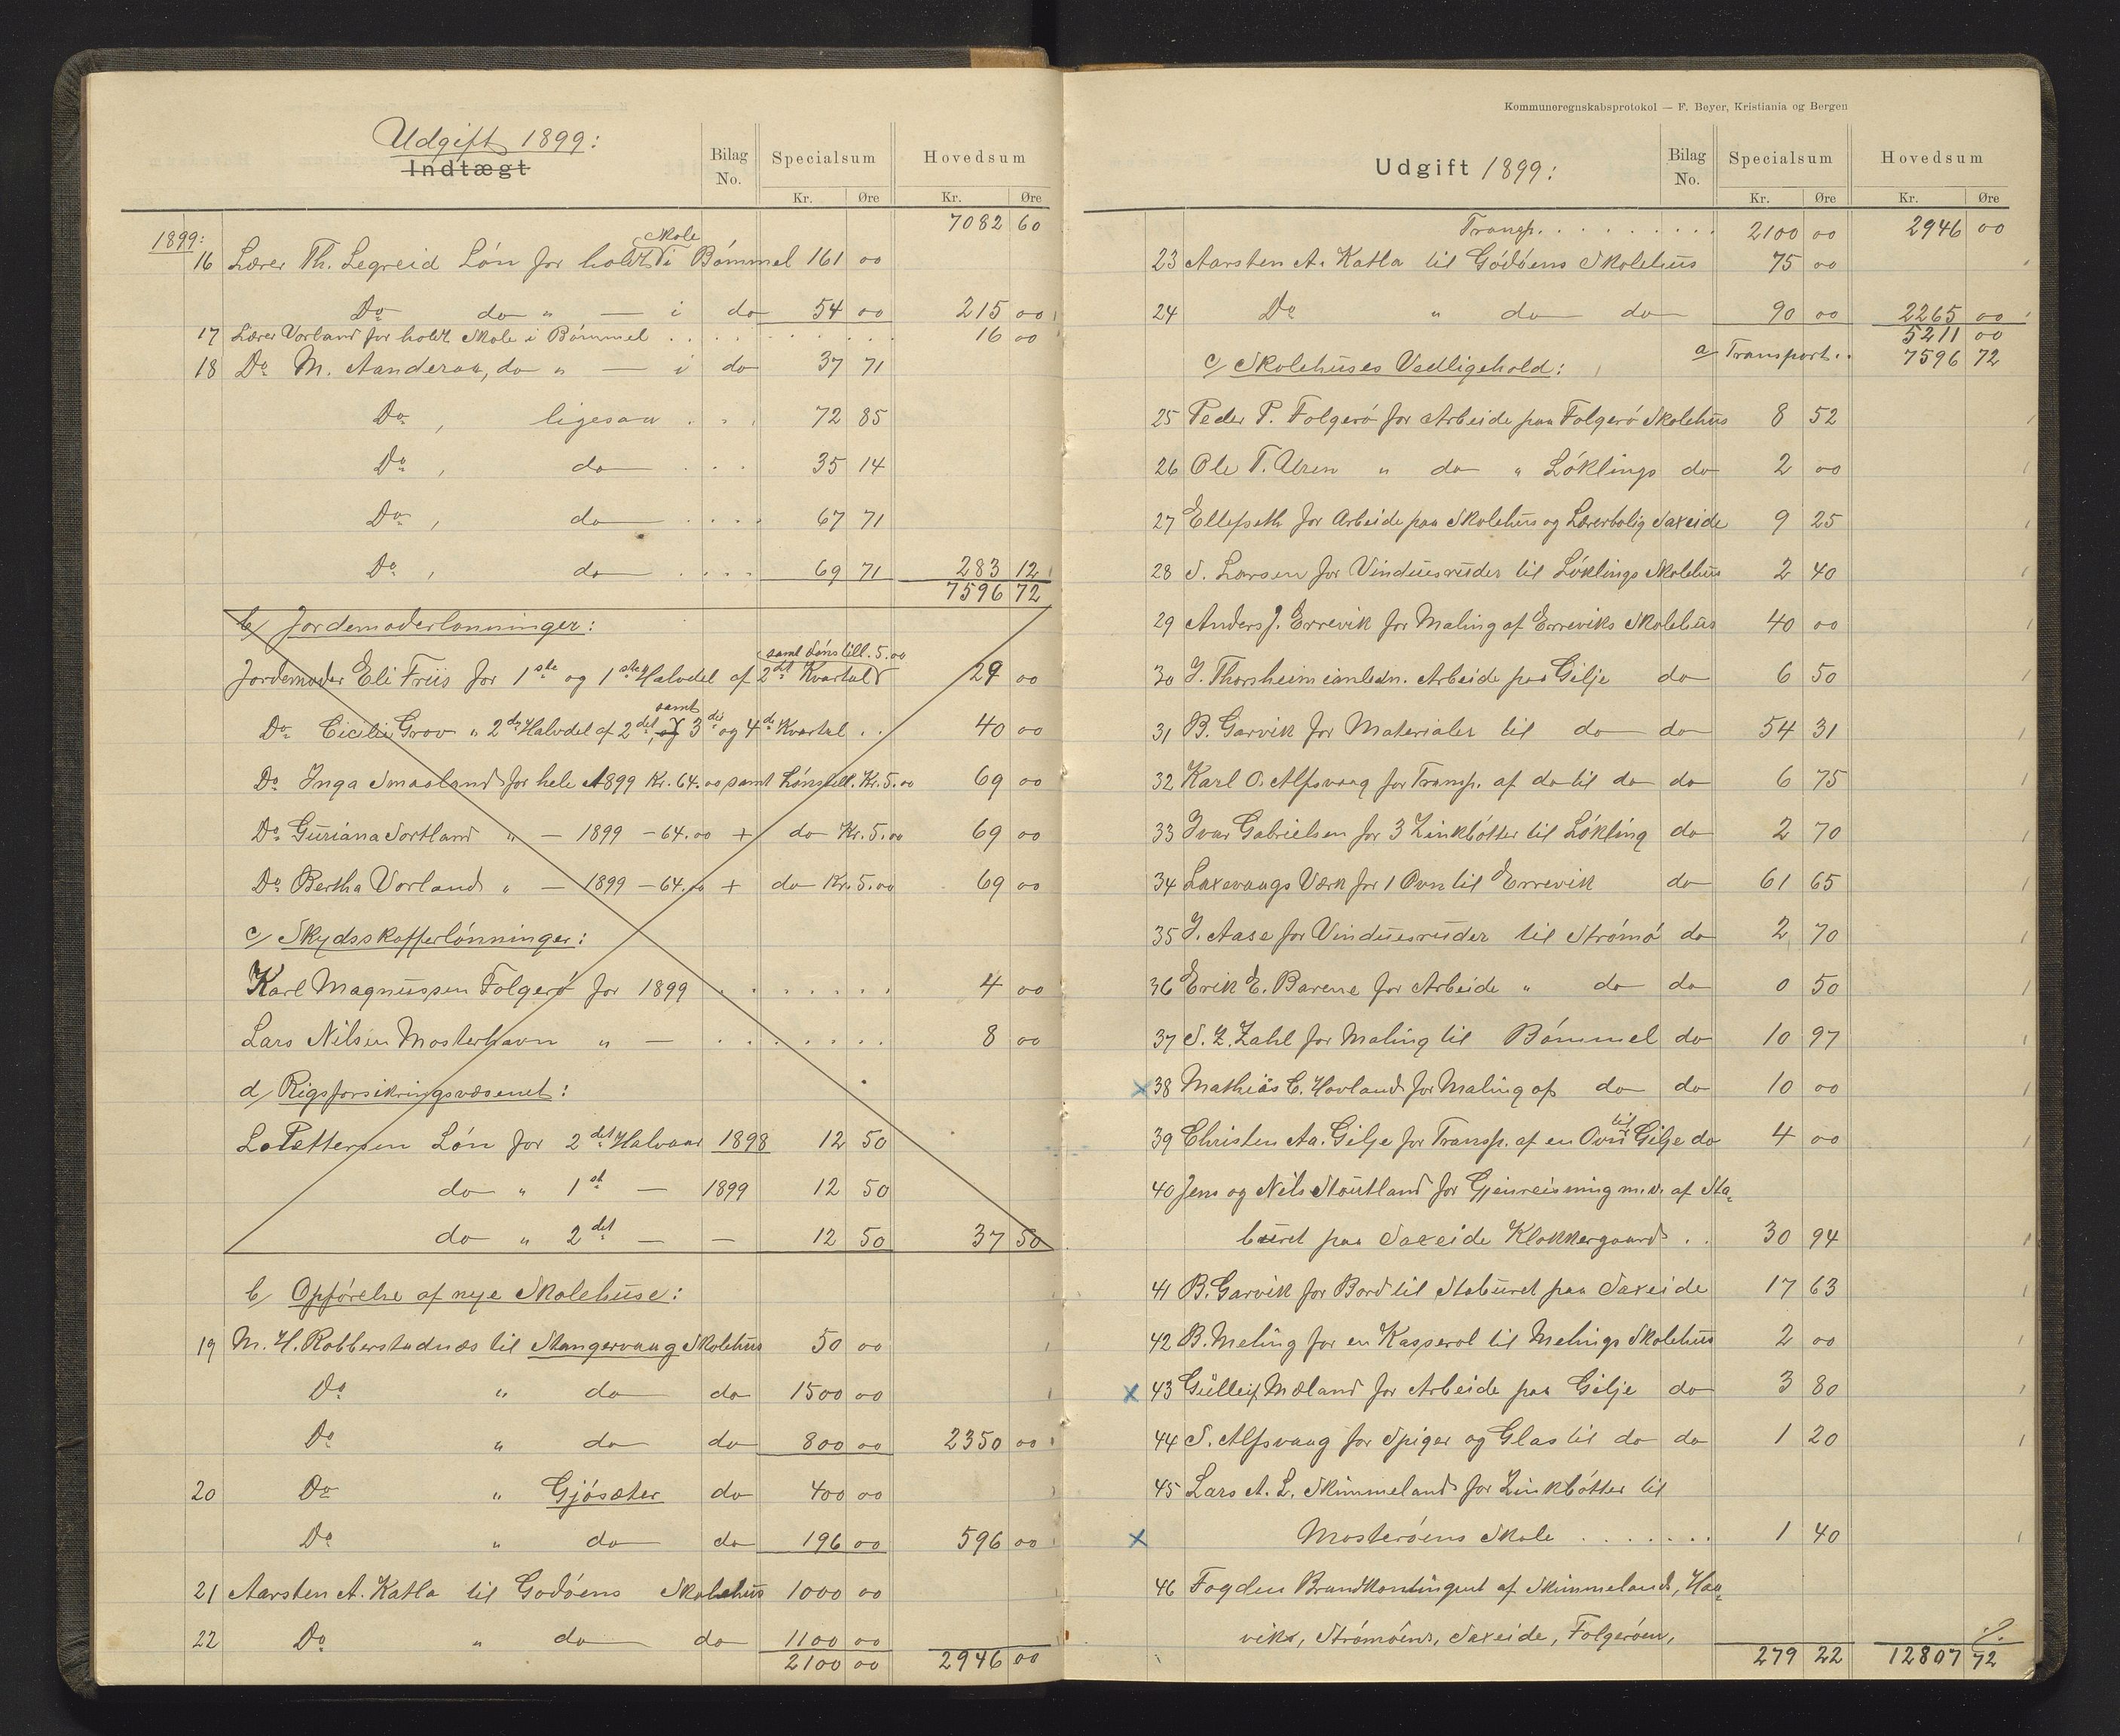 Udgift 1899:
Indtægt
Bilag No.
Specialsum
Hovedsum
Kr. Øre Kr. Øre
7082 60
1899:
16 Lærer Th. Legreid Løn for holdt Skole i Bømmel 161 00
Do do " — i do 54 00 215 00
17 Lærer Vorland for holdt Skole i Bømmel . . . . . . . . 16 00
18 Do M. Aanderaa, do " — i do 37 71
Do , ligesaa . . . 72 85
Do , do . . . 35 14
Do , do . . . . 67 71
Do , do . . . . 69 71 283 12
7596 72
b/ Jordemoderlønninger:
samt Lønstill. 5.00
Jordemoder Eli Friis for 1ste og 1ste Halvdel af 2det Kvartal 29 00
samt
Do Cicilie Grov " 2den Halvdel af 2det, og 3die og 4de Kvartal . . 40 00
Do Inga Smaaland for hele 1899 Kr. 64.00 samt Lønstill. Kr. 5.00 69 00
Do Guriana Sortland " — 1899 — 64.00 + do Kr. 5.00 69 00
Do Bertha Vorland " — 1899 — 64.00 + do Kr. 5.00 69 00
c/ Skydsskafferlønninger:
Karl Magnussen Folgerø for 1899 . . . . . . . 4 00
Lars Nilsen Mosterhavn " — . . . . . . . 8 00
d/ Rigsforsikringsvæsenet:
L. Pettersen Løn for 2det Halvaar 1898 12 50
do " 1st — 1899 12 50
do " 2det — — 12 50 37 50
b/ Opførelse af nye Skolehuse:
19 M. H. Robberstadnæs til Stangervaag Skolehus 50 00
Do " do do 1500 00
Do " do do 800 00 2350 00
20 Do " Gjøsæter do 400 00
Do " do do 196 00 596 00
21 Aarsten A. Katla til Godøens Skolehus 1000 00
22 Do " do do 1100 00
2100 00 2946 00
Kommuneregnskabsprotokol — F. Beyer, Kristiania og Bergen
Udgift 1899:
Bilag No.
Specialsum
Hovedsum
Kr. Øre Kr. Øre
Transp. . . . . . . . . . 2100 00 2946 00
23 Aarsten A. Katla til Gødøens Skolehus 75 00
24 Do " do do 90 00 2265 00
5211 00
a/ Transport . . 7596 72
c/ Skolehuses Vedligehold:
25 Peder P. Folgerø for Arbeide paa Folgerø Skolehus 8 52
26 Ole T. Uren " do " Løklings do 2 00
27 Ellefseth for Arbeide paa Skolehus og Lærerbolig Saxeide 9 25
28 S. Larsen for Vinduesruder til Løklings Skolehus 2 40
29 Anders J. Errevik for Maling af Erreviks Skolehus 40 00
30 J. Thorsheim ianledn. Arbeide paa Gilje do 6 50
31 B. Garvik for Materialer til do do 54 31
32 Karl O. Alfsvaag for Transp. af do til do do 6 75
33 Ivar Gabrielsen for 3 Zinkbøtter til Løkling do 2 70
34 Laxevaags Værk for 1 Ovn til Errevik do 61 65
35 J. Aase for Vinduesruder til Strømø do 2 70
36 Erik E. Barene for Arbeide " do do 0 50
37 S. Z. Zahl for Maling til Bømmel do 10 97
x 38 Mathias C. Hovland for Maling af do do 10 00
39 Christen Aa. Gilje for Transp. af en Ovn til Gilje do 4 00
40 Jens og Nils Stoutland for Gjenreisning m.v. af Sta-
buret paa Saxeide Klokkergaard . . 30 94
41 B. Garvik for Bord til Staburet paa Saxeide 17 63
42 B. Meling for en Kasserol til Melings Skolehus 2 00
x 43 Gulleif Mæland for Arbeide paa Gilje do 3 80
44 S. Alfsvaag for Spiger og Glas til do do 1 20
45 Lars A. L. Skimmeland for Zinkbøtter til
x Mosterøens Skole . . . . . . . 1 40
46 Fogden Brandkontingent af Skimmeland, Haa-
viks, Strømøens, Saxeide, Folgerøen,
279 22 12807 72